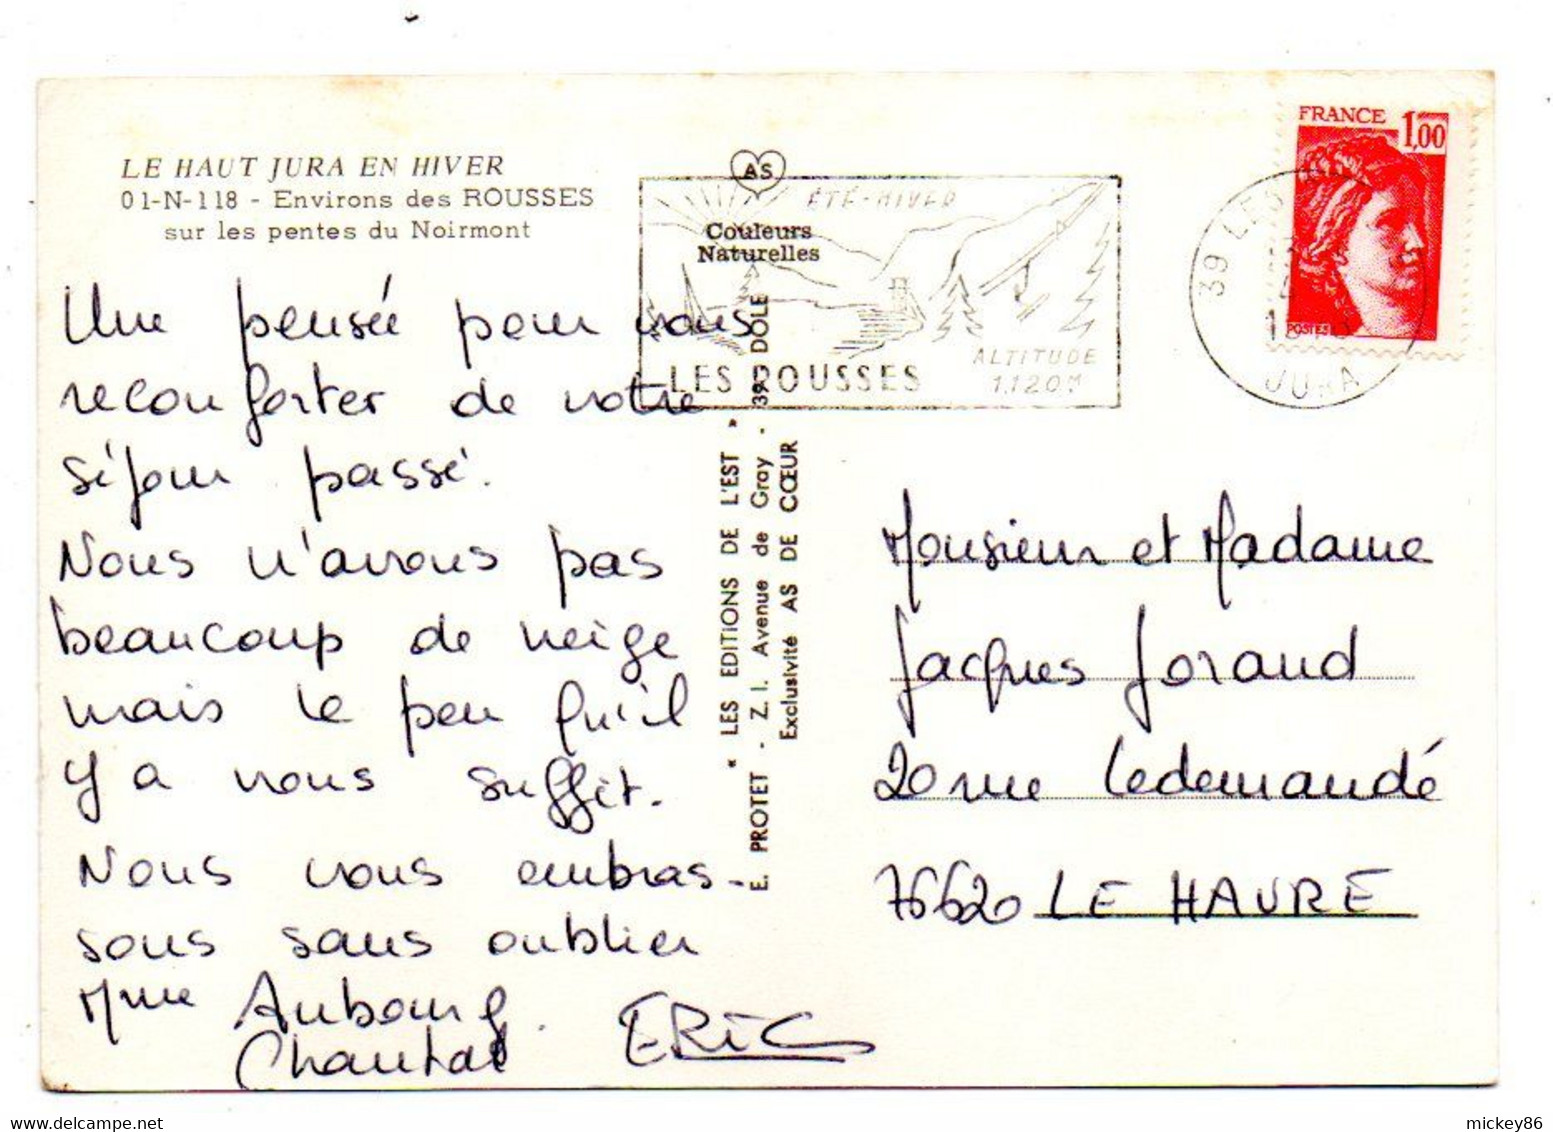 LE HAUT JURA EN HIVER
01-N-118 - Environs des ROUSSES
sur les pentes du Noirmont
Une pensée pour vous
reconforter de votre
séjour passé.
Nous n'avons pas
beaucoup de neige
mais le peu qu'il
y a nous suffit.
Nous vous embras-
sons sans oublier
Mme Aubourg.
Chantal ERIC
AS
Couleurs
Naturelles
ÉTÉ-HIVER
LES ROUSSES
ALTITUDE
1.120M
« LES EDITIONS DE L'EST »
E. PROTET - Z. I. Avenue de Gray - 39 DOLE
Exclusivité AS DE CŒUR
FRANCE 1,00
POSTES
39 LES
JURA
Monsieur et Madame
Jacques Joraud
20 rue Ledemandé
76620 LE HAVRE
mickey86